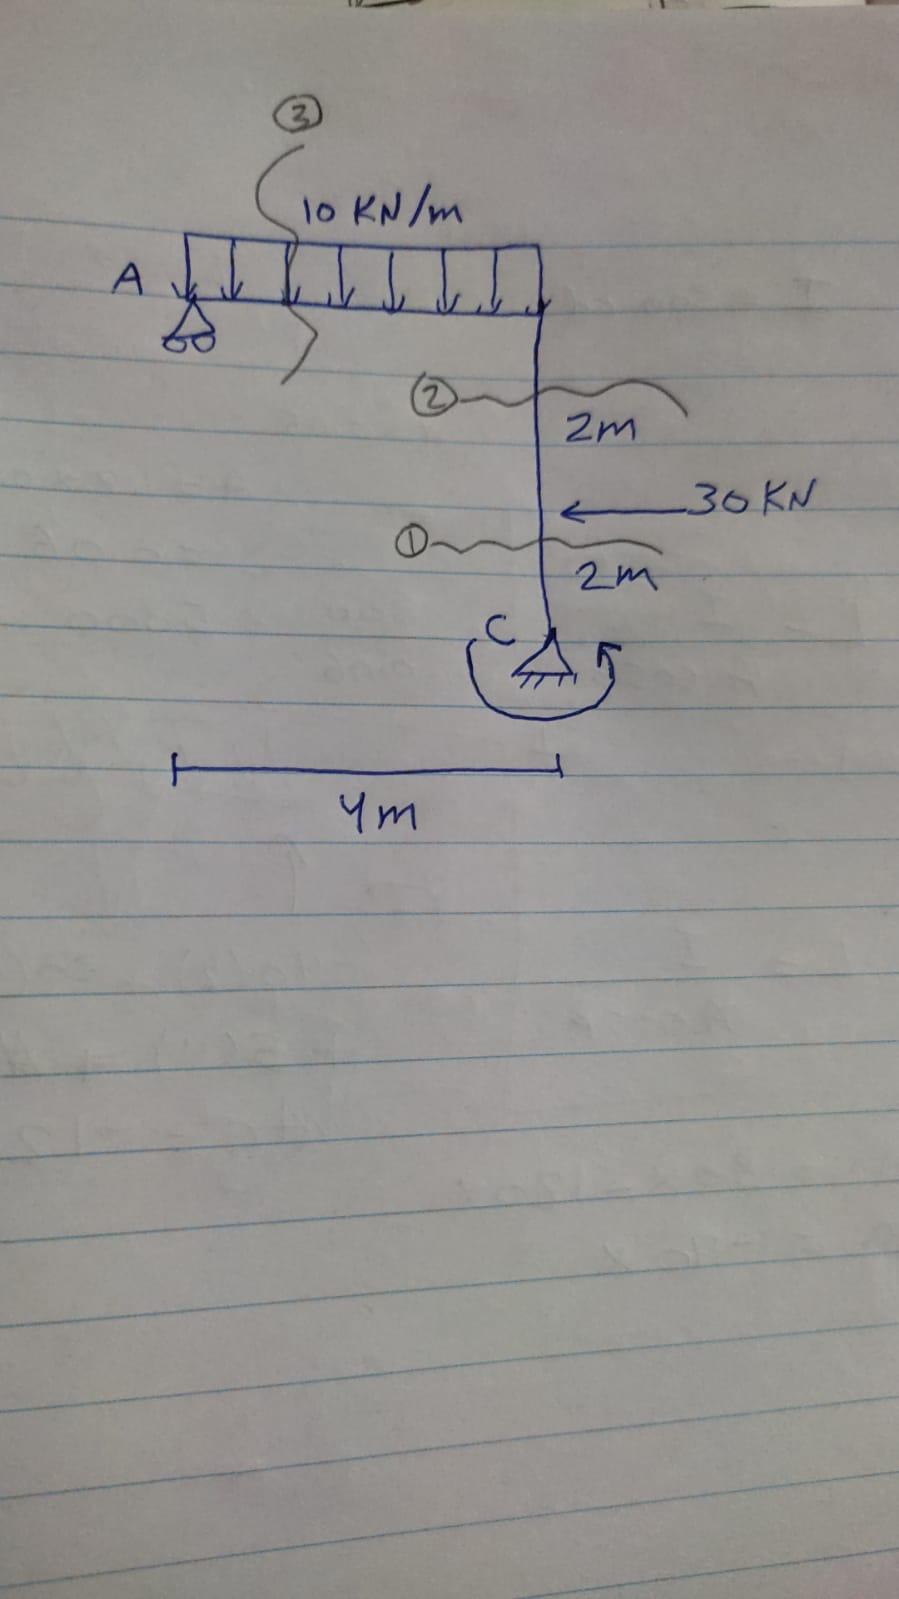 ③
10 KN/m
A
②
2m
30 KN
①
2m
C
4m